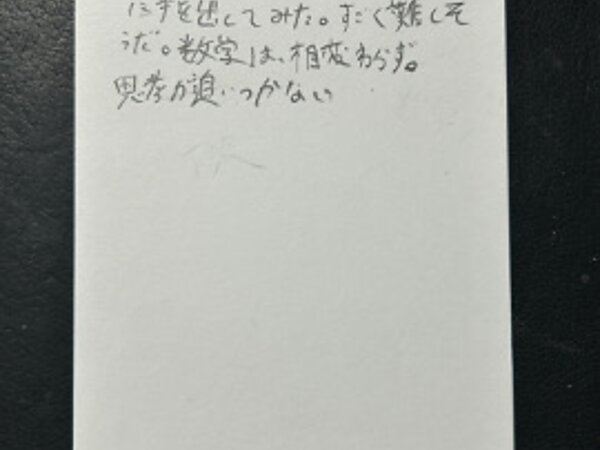 に手を出してみた。すごく難しそ
うだ。数学は、相変わらず。
思考が追いつかない